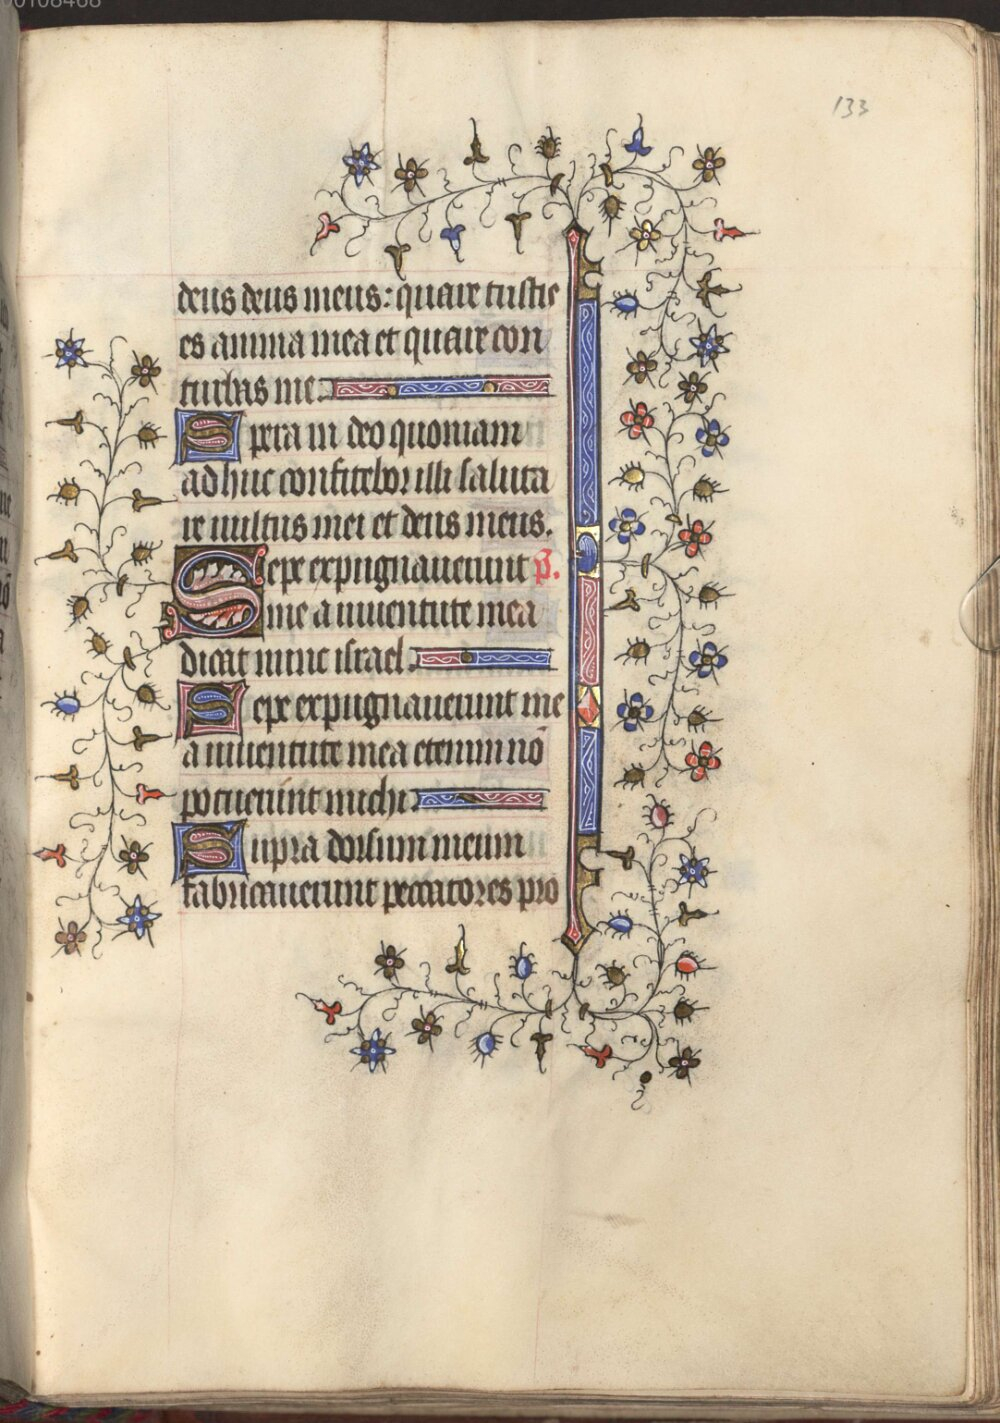 00108468
133
deus deus meus: quare tristis
es anima mea et quare con
turbas me
Spera in deo quoniam
adhuc confitebor illi saluta
re uultus mei et deus meus.
Sepe expugnauerunt p̄.
me a iuuentute mea
dicat nunc israel
Sepe expugnauerunt me
a iuuentute mea etenim nō
potuerunt michi
Supra dorsum meum
fabricauerunt peccatores pro